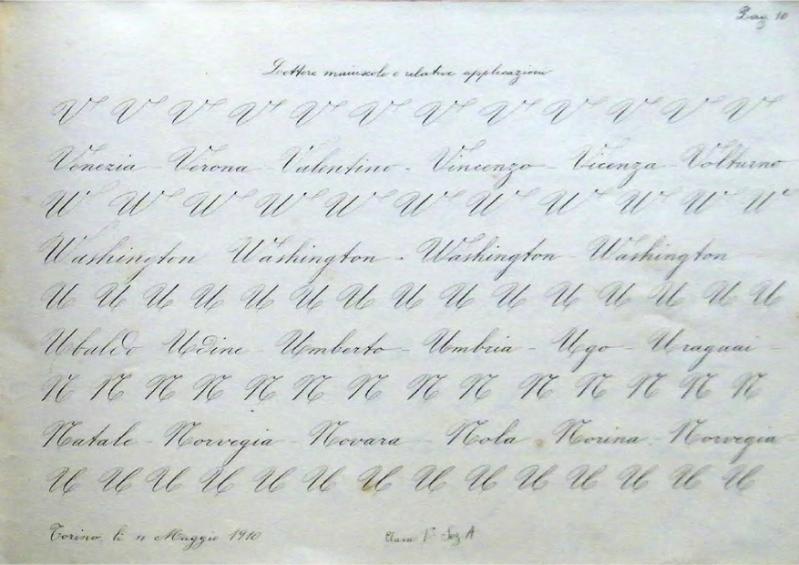 Pag 10
Lettere maiuscole e relative applicazioni
V V V V V V V V V V V V
Venezia - Verona - Valentino - Vincenzo - Vicenza - Volturno
W W W W W W W W W W W
Washington Washington - Washington - Washington
U U U U U U U U U U U U U U U
Ubaldo Udine - Umberto - Umbria - Ugo - Uraguai -
N N N N N N N N N N N N N N
Natale - Norvegia - Novara - Nola - Norina - Norvegia
U U U U U U U U U U U U U U
Torino, li 11 Maggio 1910
Classe 1ª Sez A